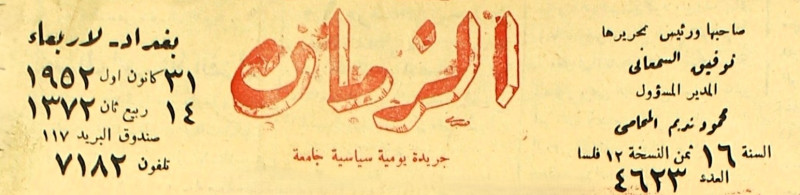 صاحبها ورئيس تحريرها
توفيق السمعاني
المدير المسؤول
محمود نديم المحامي
السنة ١٦ ثمن النسخة ١٢ فلسا
العدد ٤٦٢٣
الزمان
جريدة يومية سياسية جامعة
بغداد - لاربعاء
٣١ كانون اول ١٩٥٢
١٤ ربيع ثان ١٣٧٢
صندوق البريد ١١٧
تلفون ٧١٨٢